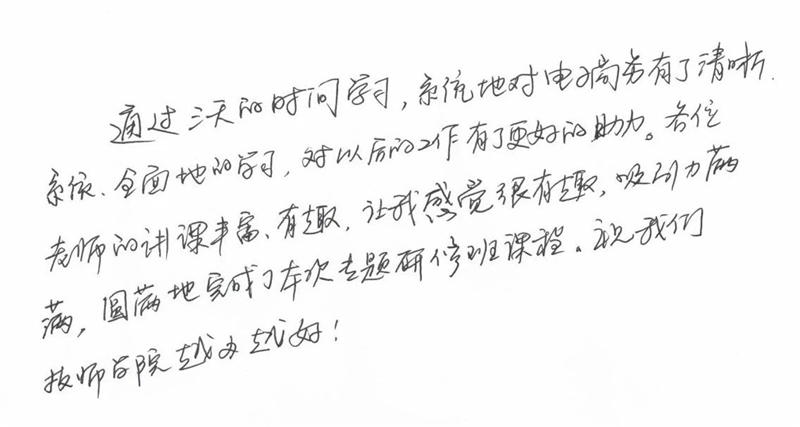 通过三天的时间学习,系统地对电子商务有了清晰、
系统、全面地的学习,对以后的工作有了更好的助力。各位
老师的讲课丰富、有趣,让我感觉很有趣,吸引力满
满,圆满地完成了本次专题研修班课程。祝我们
技师学院越办越好!